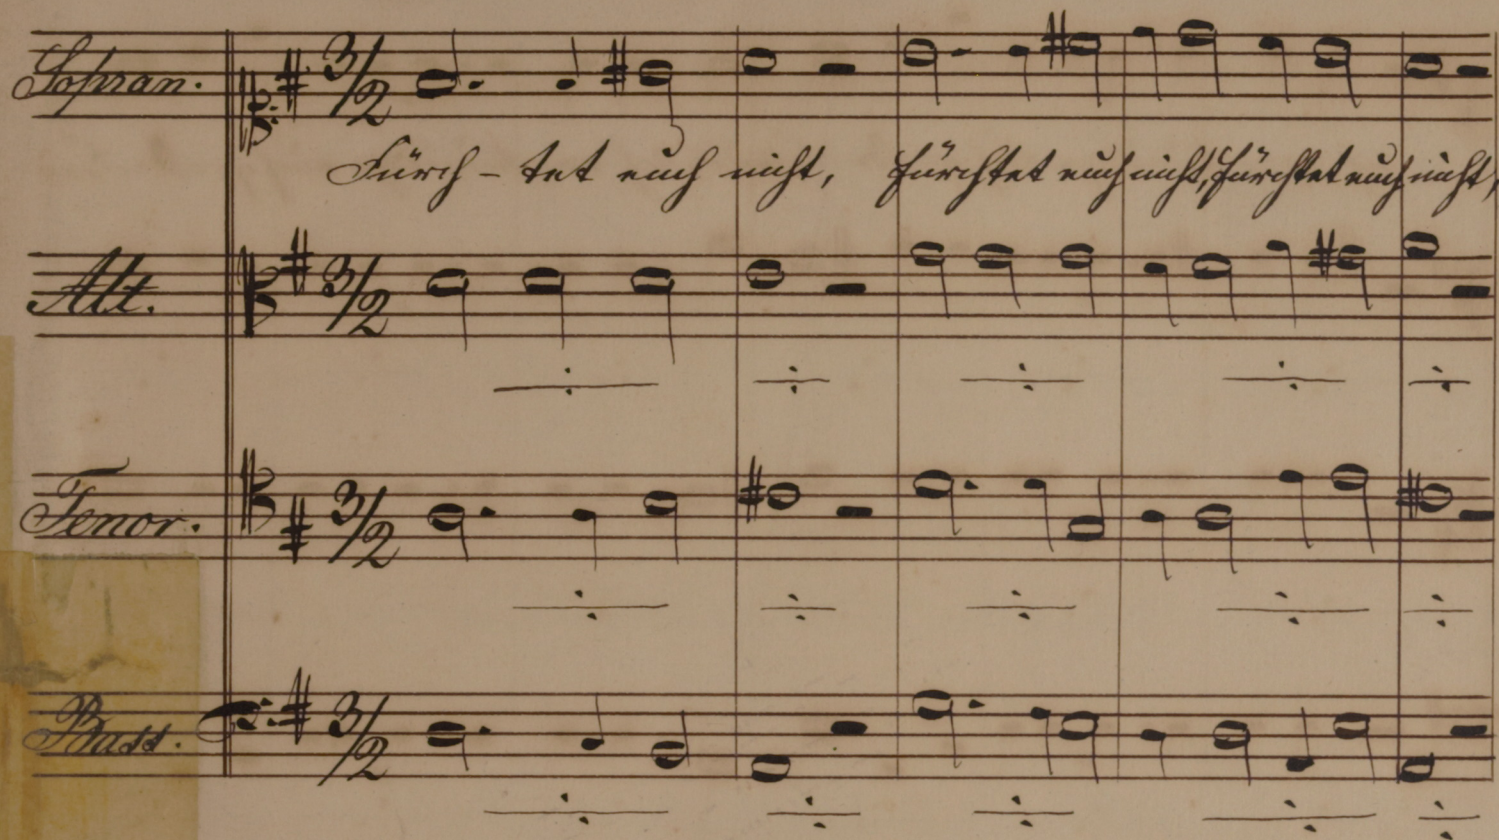 Sopran. 3/2
Fürch - tet euch nicht, fürchtet euch nicht, fürchtet euch nicht,
Alt. 3/2
Tenor. 3/2
Bass. 3/2